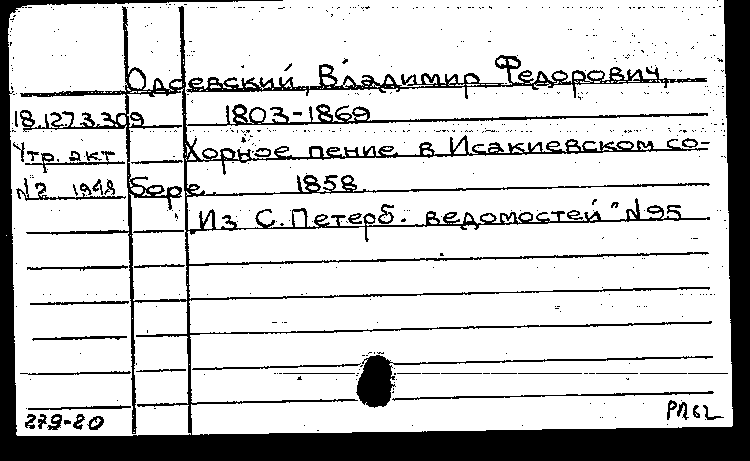 Одоевский, Владимир Федорович,
18.127.3.309 1803-1869
Утр. акт Хорное пение в Исакиевском со-
№2 1948 боре. 1858.
Из С. Петерб. ведомостей №95
279-20
РП62